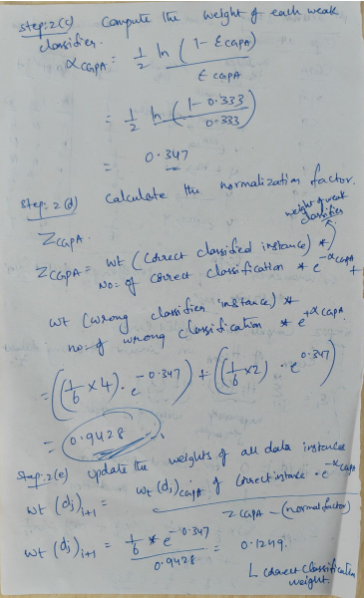 step:2(c) Compute the weight of each weak
classifier.
α CGPA = 1/2 ln (1 - ε CGPA) / ε CGPA
= 1/2 ln (1 - 0.333 / 0.333)
= 0.347
Step: 2(d) Calculate the normalization factor.
Z CGPA.
weight of weak
classifier
Z CGPA = wt (correct classified instance) *
no: of correct classification * e^-α CGPA +
wt (wrong classifier instance) *
no: of wrong classification * e^+α CGPA
= ((1/6 × 4) · e^-0.347) + ((1/6 × 2) · e^0.347)
= 0.9428
Step: 2(e) update the weights of all data instances
wt (dj) i+1 = wt (dj) CGPA of correct instance · e^-α CGPA / Z CGPA - (normal factor)
wt (dj) i+1 = 1/6 * e^-0.347 / 0.9428 = 0.1249.
correct classification
weight.